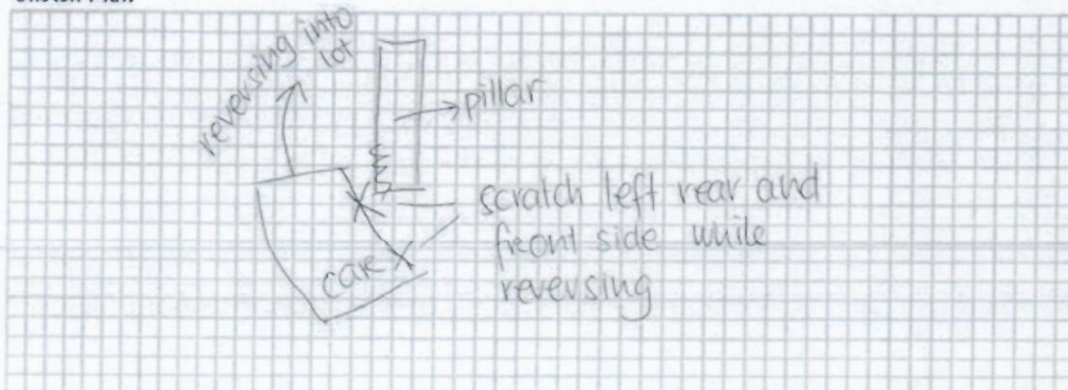 reversing into
lot
pillar
scratch left rear and
front side while
reversing
car